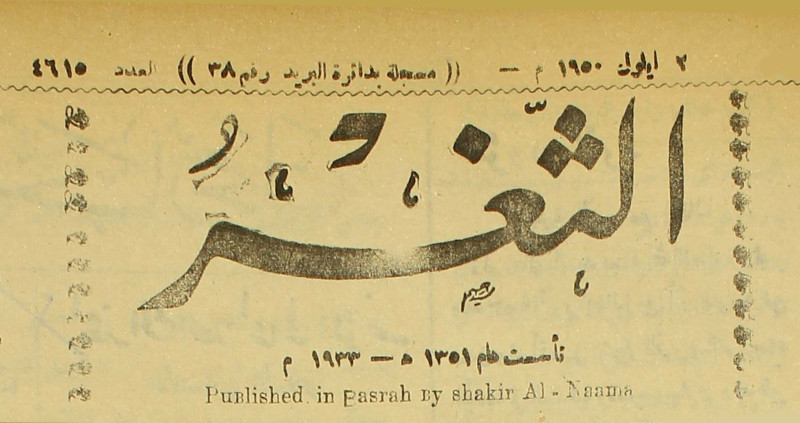 ٢ ايلول ١٩٥٠ م — (( مسجلة بدائرة البريد رقم ٣٨ )) العدد ٤٦١٥
الثَّغْرُ
تأسست عام ١٣٥١ ه — ١٩٣٣ م
Published in Basrah By shakir Al - Naama